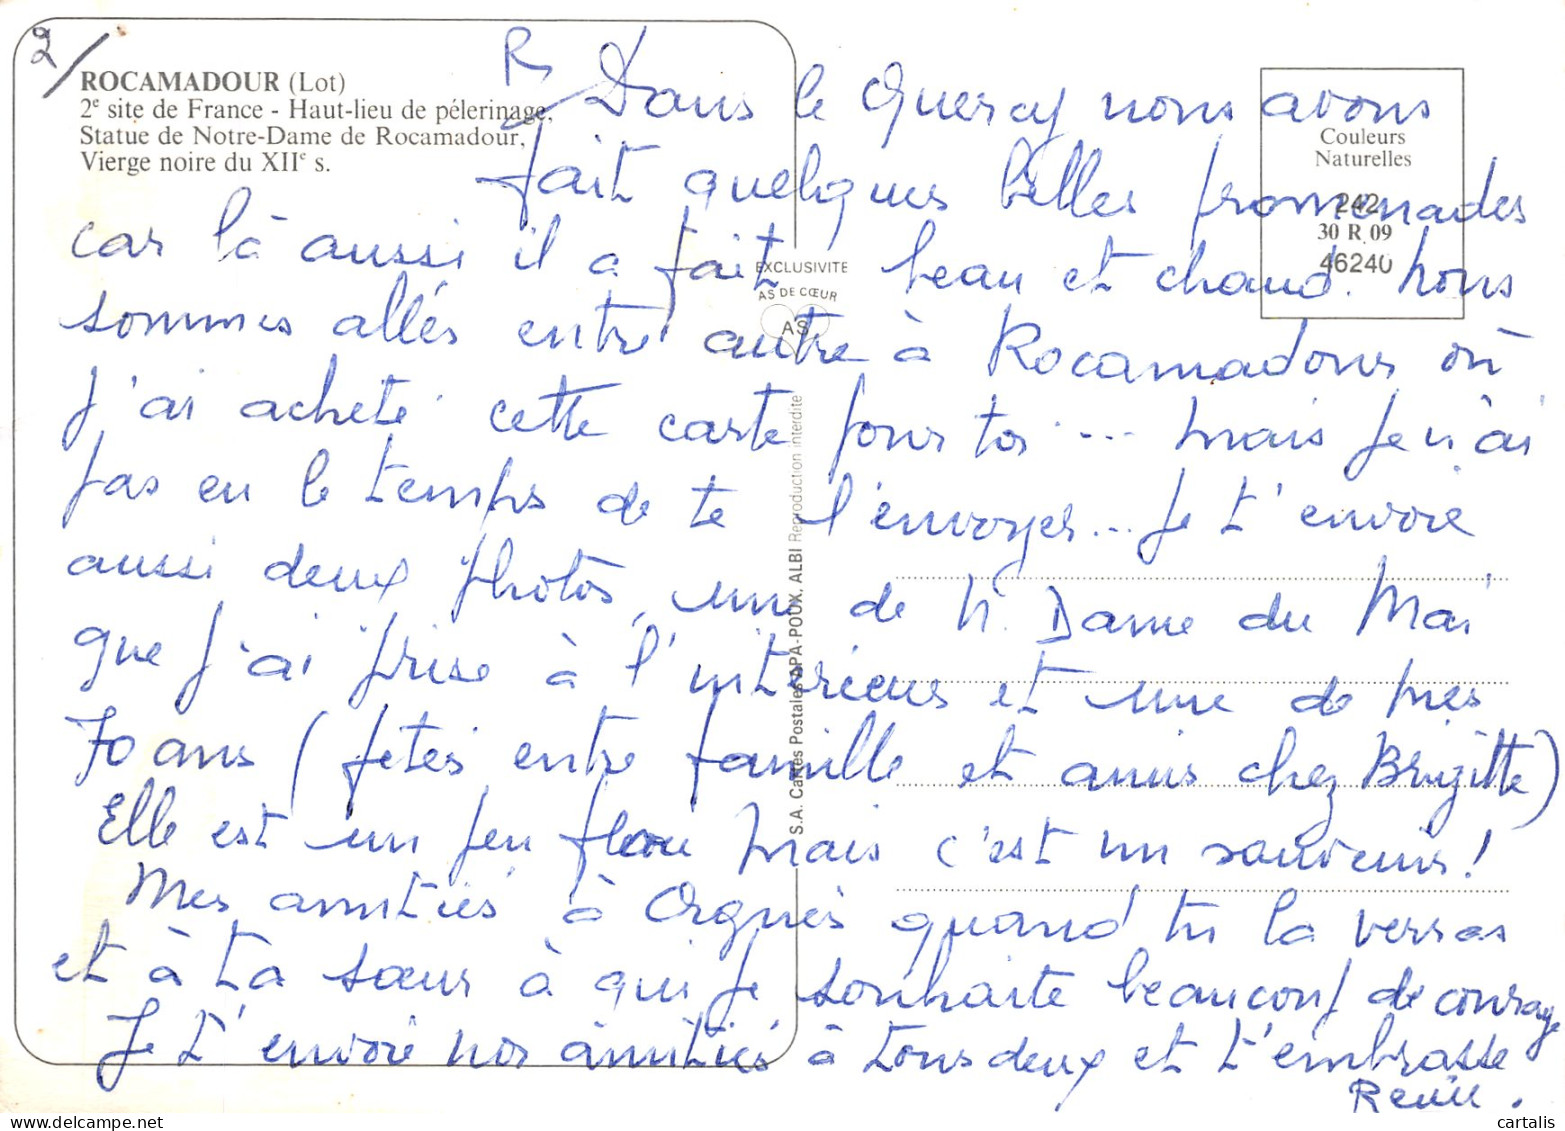 2/
ROCAMADOUR (Lot)
2e site de France - Haut-lieu de pélerinage.
Statue de Notre-Dame de Rocamadour,
Vierge noire du XIIe s.
Couleurs
Naturelles
242
30 R 09
46240
EXCLUSIVITE
AS DE CŒUR
AS
S.A. Cartes Postales APA-POUX, ALBI Reproduction interdite
Dans le Quercy nous avons
fait quelques belles promenades
car là aussi il a fait beau et chaud. Nous
sommes allés entre autre à Rocamadour où
j'ai acheté cette carte pour toi ... mais je n'ai
pas eu le temps de te l'envoyer... Je t'envoie
aussi deux photos, une de N. Dame du Mai
que j'ai prise à l'intérieur et une de mes
70 ans (fêtés entre famille et amis chez Brigitte)
Elle est un peu floue mais c'est un souvenir!
Mes amitiés à quand tu la verras
et à ta sœur à qui je souhaite beaucoup de courage
Je t'envoie nos amitiés à tous deux et t'embrasse